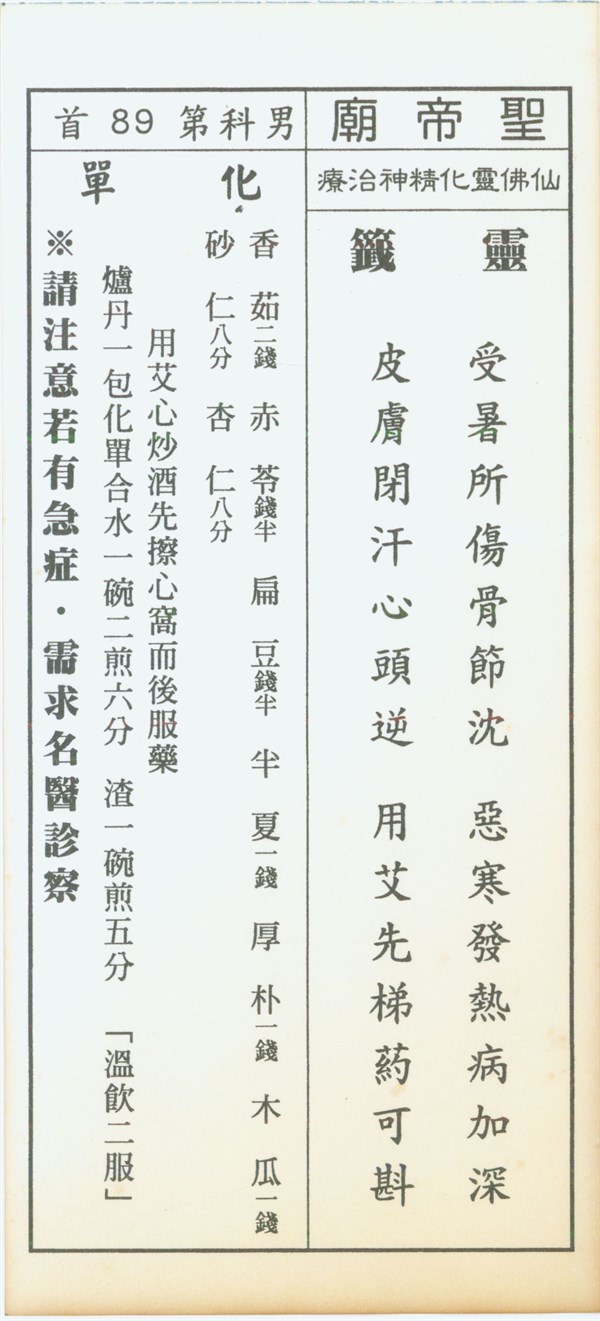 聖帝廟
仙佛靈化精神治療
靈籤
受暑所傷骨節沈　惡寒發熱病加深
皮膚閉汗心頭逆　用艾先梯葯可斟
男科第89首
化單
香茹二錢　赤苓錢半　扁豆錢半　半夏一錢　厚朴一錢　木瓜一錢
砂仁八分　杏仁八分
用艾心炒酒先擦心窩而後服藥
爐丹一包化單合水一碗二煎六分　渣一碗煎五分　「溫飲二服」
※請注意若有急症・需求名醫診察